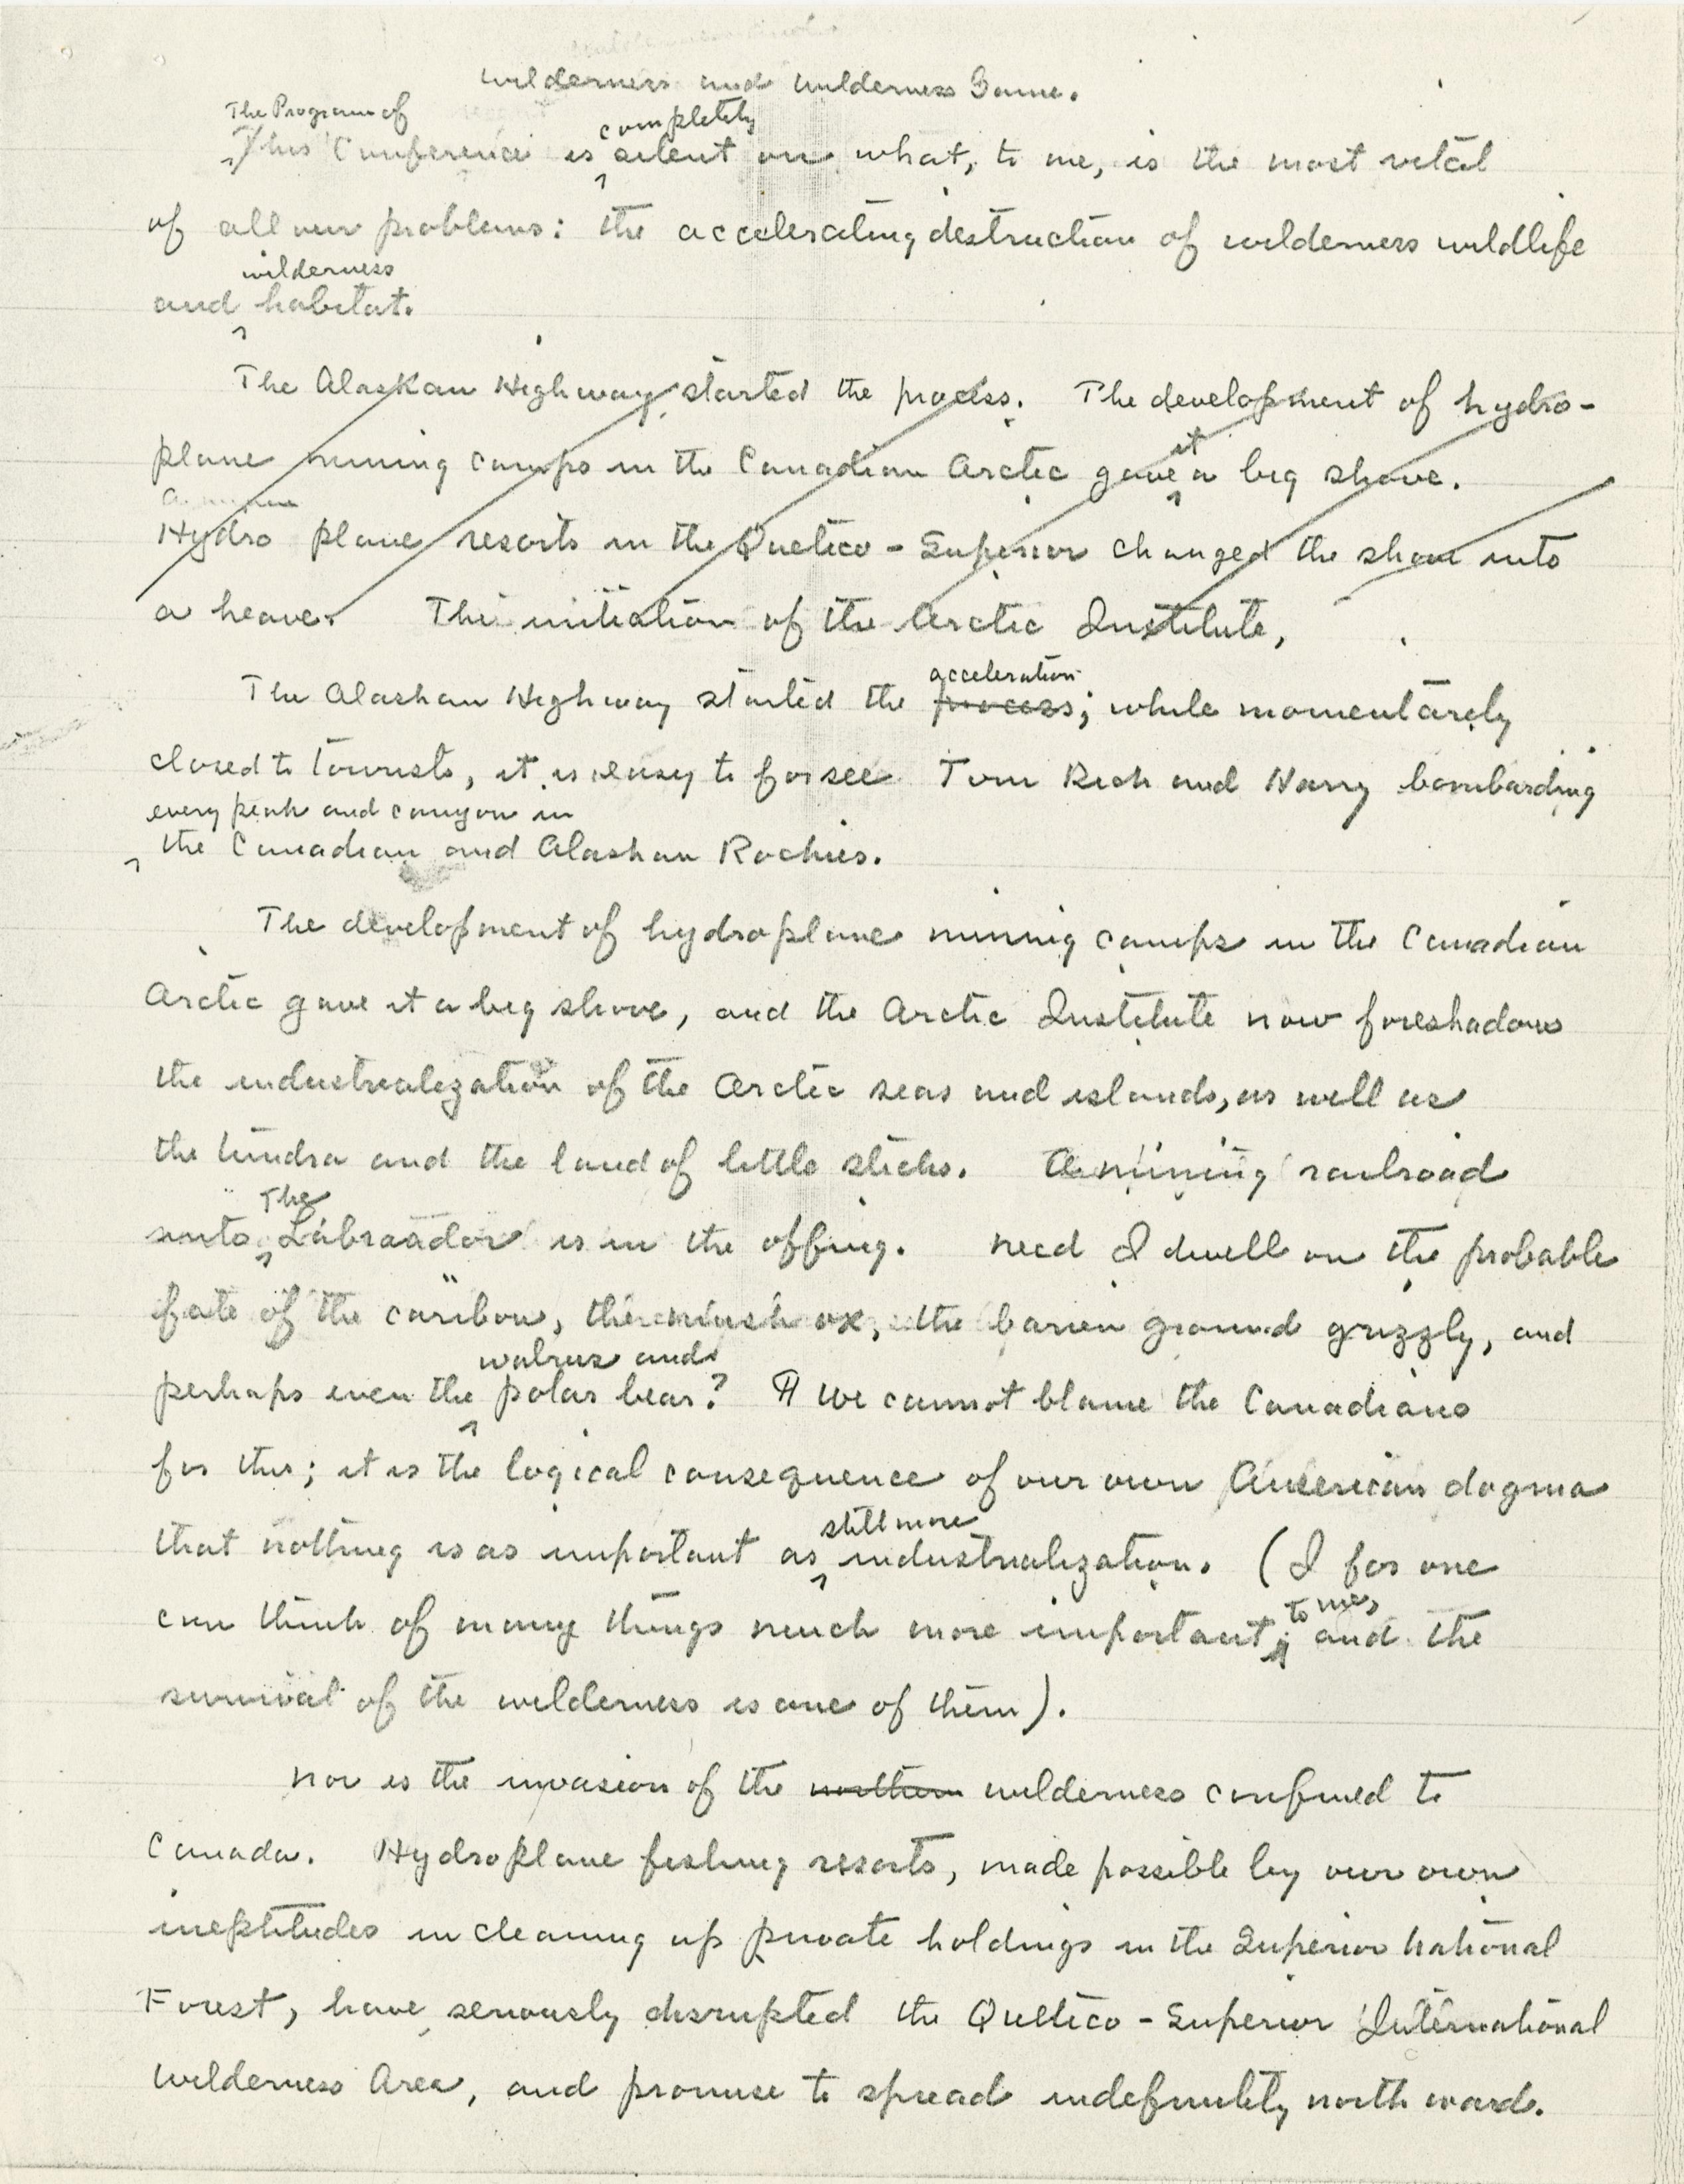 Wilderness and Wilderness Game.
The Program of
This Conference is completely silent on what, to me, is the most vital
of all our problems: the accelerating destruction of wilderness wildlife
and wilderness habitat.
The Alaskan Highway started the process. The development of hydro-
plane mining camps in the Canadian Arctic gave it a big shove.
Hydro plane resorts in the Quetico-Superior changed the shove into
a heave. The initiation of the Arctic Institute,
The Alaskan Highway started the process acceleration; while momentarely
closed to tourists, it is easy to forsee Tom Rich and Harry bombarding
every peak and canyon in
the Canadian and Alaskan Rockies.
The development of hydroplane mining camps in the Canadian
Arctic gave it a big shove, and the Arctic Institute now foreshadows
the industrialization of the Arctic seas and islands, as well as
the tundra and the land of little sticks. A mining railroad
into The Labraador is in the offing. Need I dwell on the probable
fate of the caribou, the musk ox, the barren ground grizzly, and
perhaps even the walrus and polar bear? ¶ We cannot blame the Canadians
for this; it is the logical consequence of our own American dogma
that nothing is as important as still more industrialization. (I for one
can think of many things much more important to me, and the
survival of the wilderness is one of them).
Nor is the invasion of the northern wilderness confined to
Canada. Hydroplane fishing resorts, made possible by our own
ineptitudes in cleaning up private holdings in the Superior National
Forest, have seriously disrupted the Quetico-Superior International
Wilderness Area, and promise to spread indefinitely north ward.